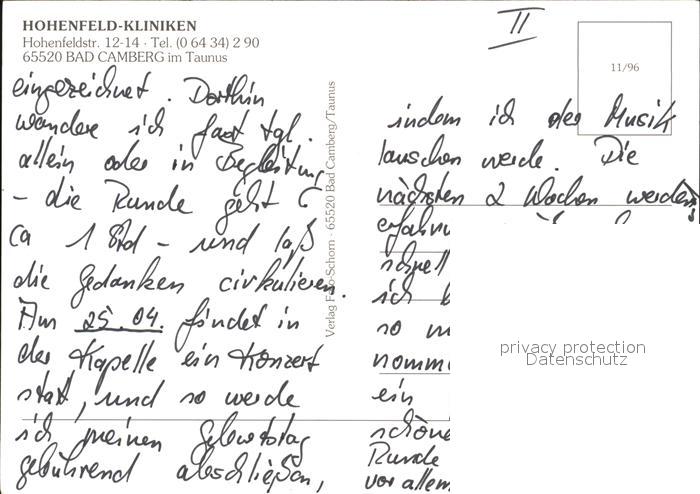 HOHENFELD-KLINIKEN
Hohenfeldstr. 12-14 · Tel. (0 64 34) 2 90
65520 BAD CAMBERG im Taunus
II
11/96
eingezeichnet. Dorthin
wandere ich fast tgl.
allein oder in Begleitung
- die Runde geht
ca 1 Std - und laß
die Gedanken cirkulieren.
Am 25.04. findet in
der Kapelle ein Konzert
statt, und so werde
ich meinen Geburtstag
gebührend abschließen,
Verlag Foto-Schorn · 65520 Bad Camberg/Taunus
indem ich der Musik
lauschen werde. Die
nächsten 2 Wochen werden
schnell
ich
so
ein
Runde
vor allem
privacy protection
Datenschutz